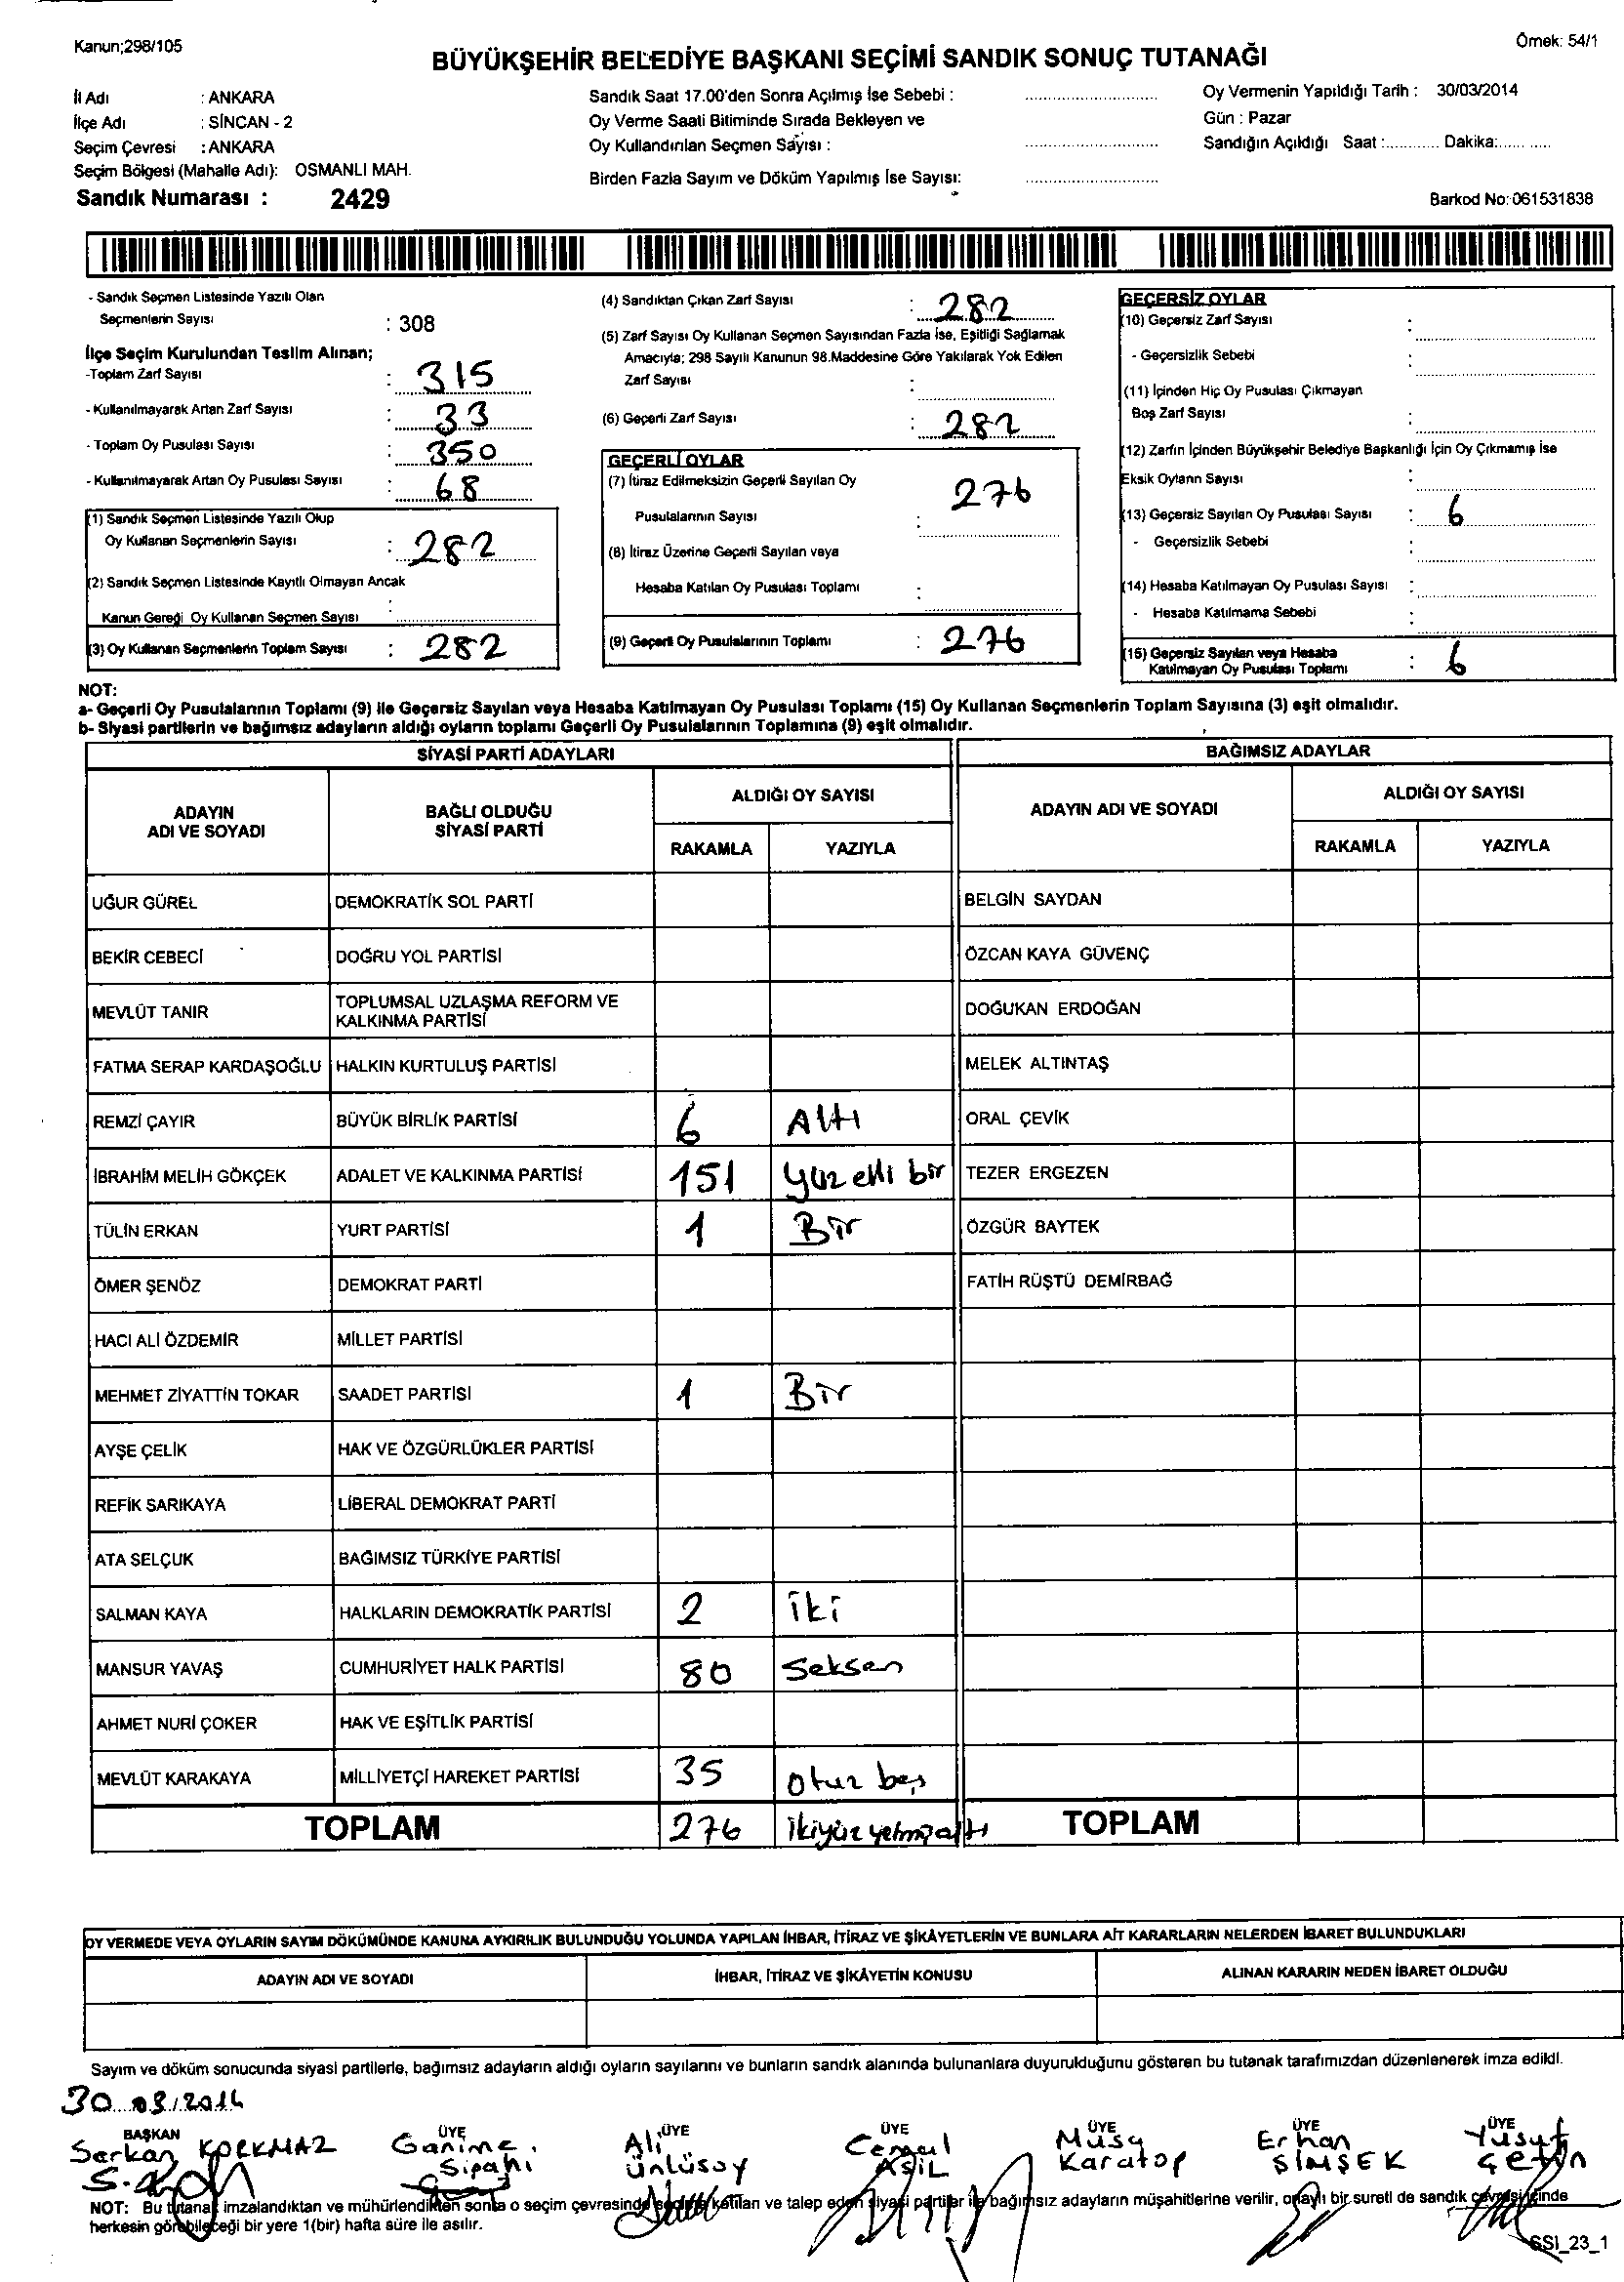 Kanun;298/105
Örnek: 54/1
BÜYÜKŞEHİR BELEDİYE BAŞKANI SEÇİMİ SANDIK SONUÇ TUTANAĞI
İl Adı : ANKARA
İlçe Adı : SİNCAN - 2
Seçim Çevresi : ANKARA
Seçim Bölgesi (Mahalle Adı): OSMANLI MAH.
Sandık Numarası : 2429
Sandık Saat 17.00'den Sonra Açılmış İse Sebebi :
Oy Verme Saati Bitiminde Sırada Bekleyen ve
Oy Kullandırılan Seçmen Sayısı :
Birden Fazla Sayım ve Döküm Yapılmış İse Sayısı:
Oy Vermenin Yapıldığı Tarih : 30/03/2014
Gün : Pazar
Sandığın Açıldığı Saat :........... Dakika:...........
Barkod No: 061531838
- Sandık Seçmen Listesinde Yazılı Olan
Seçmenlerin Sayısı : 308
İlçe Seçim Kurulundan Teslim Alınan;
-Toplam Zarf Sayısı : 315
- Kullanılmayarak Artan Zarf Sayısı : 33
- Toplam Oy Pusulası Sayısı : 350
- Kullanılmayarak Artan Oy Pusulası Sayısı : 68
(1) Sandık Seçmen Listesinde Yazılı Olup
Oy Kullanan Seçmenlerin Sayısı : 282
(2) Sandık Seçmen Listesinde Kayıtlı Olmayan Ancak
Kanun Gereği Oy Kullanan Seçmen Sayısı :
(3) Oy Kullanan Seçmenlerin Toplam Sayısı : 282
(4) Sandıktan Çıkan Zarf Sayısı : 282
(5) Zarf Sayısı Oy Kullanan Seçmen Sayısından Fazla İse, Eşitliği Sağlamak
Amacıyla; 298 Sayılı Kanunun 98.Maddesine Göre Yakılarak Yok Edilen
Zarf Sayısı :
(6) Geçerli Zarf Sayısı : 282
GEÇERLİ OYLAR
(7) İtiraz Edilmeksizin Geçerli Sayılan Oy
Pusulalarının Sayısı : 276
(8) İtiraz Üzerine Geçerli Sayılan veya
Hesaba Katılan Oy Pusulası Toplamı :
(9) Geçerli Oy Pusulalarının Toplamı : 276
GEÇERSİZ OYLAR
(10) Geçersiz Zarf Sayısı :
- Geçersizlik Sebebi :
(11) İçinden Hiç Oy Pusulası Çıkmayan
Boş Zarf Sayısı :
(12) Zarfın İçinden Büyükşehir Belediye Başkanlığı İçin Oy Çıkmamış İse
Eksik Oyların Sayısı :
(13) Geçersiz Sayılan Oy Pusulası Sayısı : 6
- Geçersizlik Sebebi :
(14) Hesaba Katılmayan Oy Pusulası Sayısı :
- Hesaba Katılmama Sebebi :
(15) Geçersiz Sayılan veya Hesaba
Katılmayan Oy Pusulası Toplamı : 6
NOT:
a- Geçerli Oy Pusulalarının Toplamı (9) ile Geçersiz Sayılan veya Hesaba Katılmayan Oy Pusulası Toplamı (15) Oy Kullanan Seçmenlerin Toplam Sayısına (3) eşit olmalıdır.
b- Siyasi partilerin ve bağımsız adayların aldığı oyların toplamı Geçerli Oy Pusulalarının Toplamına (9) eşit olmalıdır.
SİYASİ PARTİ ADAYLARI BAĞIMSIZ ADAYLAR
ADAYIN ADI VE SOYADI BAĞLI OLDUĞU SİYASİ PARTİ ALDIĞI OY SAYISI ADAYIN ADI VE SOYADI ALDIĞI OY SAYISI
RAKAMLA YAZIYLA RAKAMLA YAZIYLA
UĞUR GÜREL DEMOKRATİK SOL PARTİ BELGİN SAYDAN
BEKİR CEBECİ DOĞRU YOL PARTİSİ ÖZCAN KAYA GÜVENÇ
MEVLÜT TANIR TOPLUMSAL UZLAŞMA REFORM VE KALKINMA PARTİSİ DOĞUKAN ERDOĞAN
FATMA SERAP KARDAŞOĞLU HALKIN KURTULUŞ PARTİSİ MELEK ALTINTAŞ
REMZİ ÇAYIR BÜYÜK BİRLİK PARTİSİ 6 Altı ORAL ÇEVİK
İBRAHİM MELİH GÖKÇEK ADALET VE KALKINMA PARTİSİ 151 yüz elli bir TEZER ERGEZEN
TÜLİN ERKAN YURT PARTİSİ 1 Bir ÖZGÜR BAYTEK
ÖMER ŞENÖZ DEMOKRAT PARTİ FATİH RÜŞTÜ DEMİRBAĞ
HACI ALİ ÖZDEMİR MİLLET PARTİSİ
MEHMET ZİYATTİN TOKAR SAADET PARTİSİ 1 Bir
AYŞE ÇELİK HAK VE ÖZGÜRLÜKLER PARTİSİ
REFİK SARIKAYA LİBERAL DEMOKRAT PARTİ
ATA SELÇUK BAĞIMSIZ TÜRKİYE PARTİSİ
SALMAN KAYA HALKLARIN DEMOKRATİK PARTİSİ 2 iki
MANSUR YAVAŞ CUMHURİYET HALK PARTİSİ 80 Seksen
AHMET NURİ ÇOKER HAK VE EŞİTLİK PARTİSİ
MEVLÜT KARAKAYA MİLLİYETÇİ HAREKET PARTİSİ 35 otuz beş
TOPLAM 276 ikiyüz yetmişaltı TOPLAM
OY VERMEDE VEYA OYLARIN SAYIM DÖKÜMÜNDE KANUNA AYKIRILIK BULUNDUĞU YOLUNDA YAPILAN İHBAR, İTİRAZ VE ŞİKÂYETLERİN VE BUNLARA AİT KARARLARIN NELERDEN İBARET BULUNDUKLARI
ADAYIN ADI VE SOYADI İHBAR, İTİRAZ VE ŞİKÂYETİN KONUSU ALINAN KARARIN NEDEN İBARET OLDUĞU
Sayım ve döküm sonucunda siyasi partilerle, bağımsız adayların aldığı oyların sayılarını ve bunların sandık alanında bulunanlara duyurulduğunu gösteren bu tutanak tarafımızdan düzenlenerek imza edildi.
30.03.2014
BAŞKAN ÜYE ÜYE ÜYE ÜYE ÜYE ÜYE
Serkan KORKMAZ Ganime Sipahi Ali Ünlüsoy Cemal ASİL Musa Karatop Erhan ŞİMŞEK Yusuf Çetin
NOT: Bu tutanak imzalandıktan ve mühürlendikten sonra o seçim çevresinde seçime katılan ve talep eden siyasi partiler ile bağımsız adayların müşahitlerine verilir, onaylı bir sureti de sandık çevresi içinde
herkesin görebileceği bir yere 1(bir) hafta süre ile asılır.
SSI_23_1